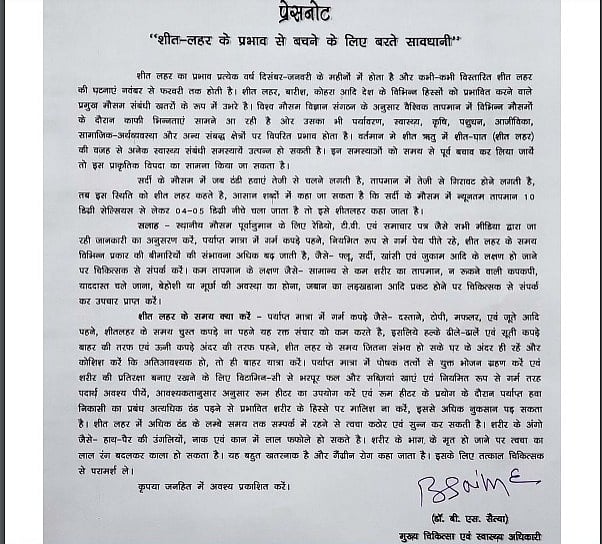 प्रेसनोट
"शीत-लहर के प्रभाव से बचने के लिए बरते सावधानी"
शीत लहर का प्रभाव प्रत्येक वर्ष दिसंबर-जनवरी के महीनों में होता है और कभी-कभी विस्तारित शीत लहर
की घटनाएं नवंबर से फरवरी तक होती है। शीत लहर, बारीश, कोहरा आदि देश के विभिन्न हिस्सों को प्रभावित करने वाले
प्रमुख मौसम संबंधी खतरों के रूप में उभरे है। विश्व मौसम विज्ञान संगठन के अनुसार वैश्विक तापमान में विभिन्न मौसमों
के दौरान काफी भिन्नताएं सामने आ रही है ओर उसका भी पर्यावरण, स्वास्थ्य, कृषि, पशुधन, आजीविका,
सामाजिक-अर्थव्यवस्था और अन्य संबद्ध क्षेत्रों पर विपरित प्रभाव होता है। वर्तमान मे शीत ऋतु में शीत-घात (शीत लहर)
की वजह से अनेक स्वास्थ्य संबंधी समस्यायें उत्पन्न हो सकती है। इन समस्याओं को समय से पूर्व बचाव कर लिया जायें
तो इस प्राकृतिक विपदा का सामना किया जा सकता है।
सर्दी के मौसम में जब ठंडी हवाएं तेजी से चलने लगती है, तापमान में तेजी से गिरावट होने लगती है,
तब इस स्थिति को शीत लहर कहते है, आसान शब्दों में कहा जा सकता है कि सर्दी के मौसम में न्यूनतम तापमान 10
डिग्री सेल्सियस से लेकर 04-05 डिग्री नीचे चला जाता है तो इसे शीतलहर कहा जाता है।
सलाह - स्थानीय मौसम पूर्वानुमान के लिए रेडियो, टी.वी. एवं समाचार पत्र जैसे सभी मीडिया द्वारा जा
रही जानकारी का अनुसरण करें, पर्याप्त मात्रा में गर्म कपड़े पहने, नियमित रूप से गर्म पेय पीते रहे, शीत लहर के समय
विभिन्न प्रकार की बीमारियों की संभावना अधिक बढ़ जाती है, जैसे- फ्लू, सर्दी, खांसी एवं जुकाम आदि के लक्षण हो जाने
पर चिकित्सक से संपर्क करें। कम तापमान के लक्षण जैसे- सामान्य से कम शरीर का तापमान, न रूकने वाली कपकपी,
याददास्त चले जाना, बेहोशी या मूर्छा की अवस्था का होना, जबान का लड़खडाना आदि प्रकट होने पर चिकित्सक से संपर्क
कर उपचार प्राप्त करें।
शीत लहर के समय क्या करें - पर्याप्त मात्रा में गर्म कपड़े जैसे- दस्ताने, टोपी, मफलर, एवं जूते आदि
पहने, शीतलहर के समय चुस्त कपड़े ना पहने यह रक्त संचार को कम करते है, इसलिये हल्के ढीले-ढालें एवं सूती कपड़े
बाहर की तरफ एवं ऊनी कपड़े अंदर की तरफ पहने, शीत लहर के समय जितना संभव हो सके घर के अंदर ही रहें और
कोशिश करें कि अतिआवश्यक हो, तो ही बाहर यात्रा करें। पर्याप्त मात्रा में पोषक तत्वों से युक्त भोजन ग्रहण करें एवं
शरीर की प्रतिरक्षा बनाए रखने के लिए विटामिन-सी से भरपूर फल और सब्जियां खाएं एवं नियमित रूप से गर्म तरह
पदार्थ अवश्य पीयें, आवश्यकतानुसार अनुसार रूम हीटर का उपयोग करें एवं रूम हीटर के प्रयोग के दौरान पर्याप्त हवा
निकासी का प्रबंध अत्यधिक ठंड पड़ने से प्रभावित शरीर के हिस्से पर मालिश ना करें, इससे अधिक नुकसान पड़ सकता
है। शीत लहर में अधिक ठंड के लम्बे समय तक सम्पर्क में रहने से त्वचा कठोर एवं सुन्न कर सकती है। शरीर के अंगो
जैसे- हाथ-पैर की उंगलियों, नाक एवं कान में लाल फफोले हो सकते है। शरीर के भाग के मृत हो जाने पर त्वचा का
लाल रंग बदलकर काला हो सकता है। यह बहुत खतरनाक है और गैंग्रीन रोग कहा जाता है। इसके लिए तत्काल चिकित्सक
से परामर्श ले।
कृपया जनहित में अवश्य प्रकाशित करें।
(डॉ. बी. एस. सैत्या)
मुख्य चिकित्सा एवं स्वास्थ्य अधिकारी